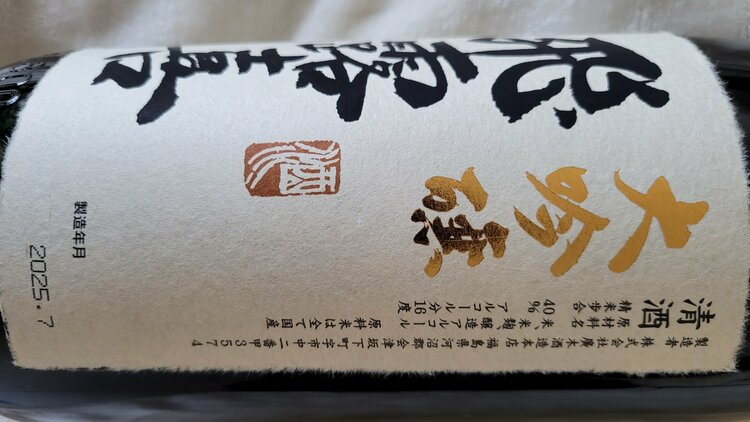 飛露喜
大吟醸
清酒
精米歩合 40% アルコール分 16度
原材料名 米、米麹、醸造アルコール
原料米は全て国産
製造者 株式会社廣木酒造本店 福島県河沼郡会津坂下町字市中二番甲3574
製造年月 2025.7